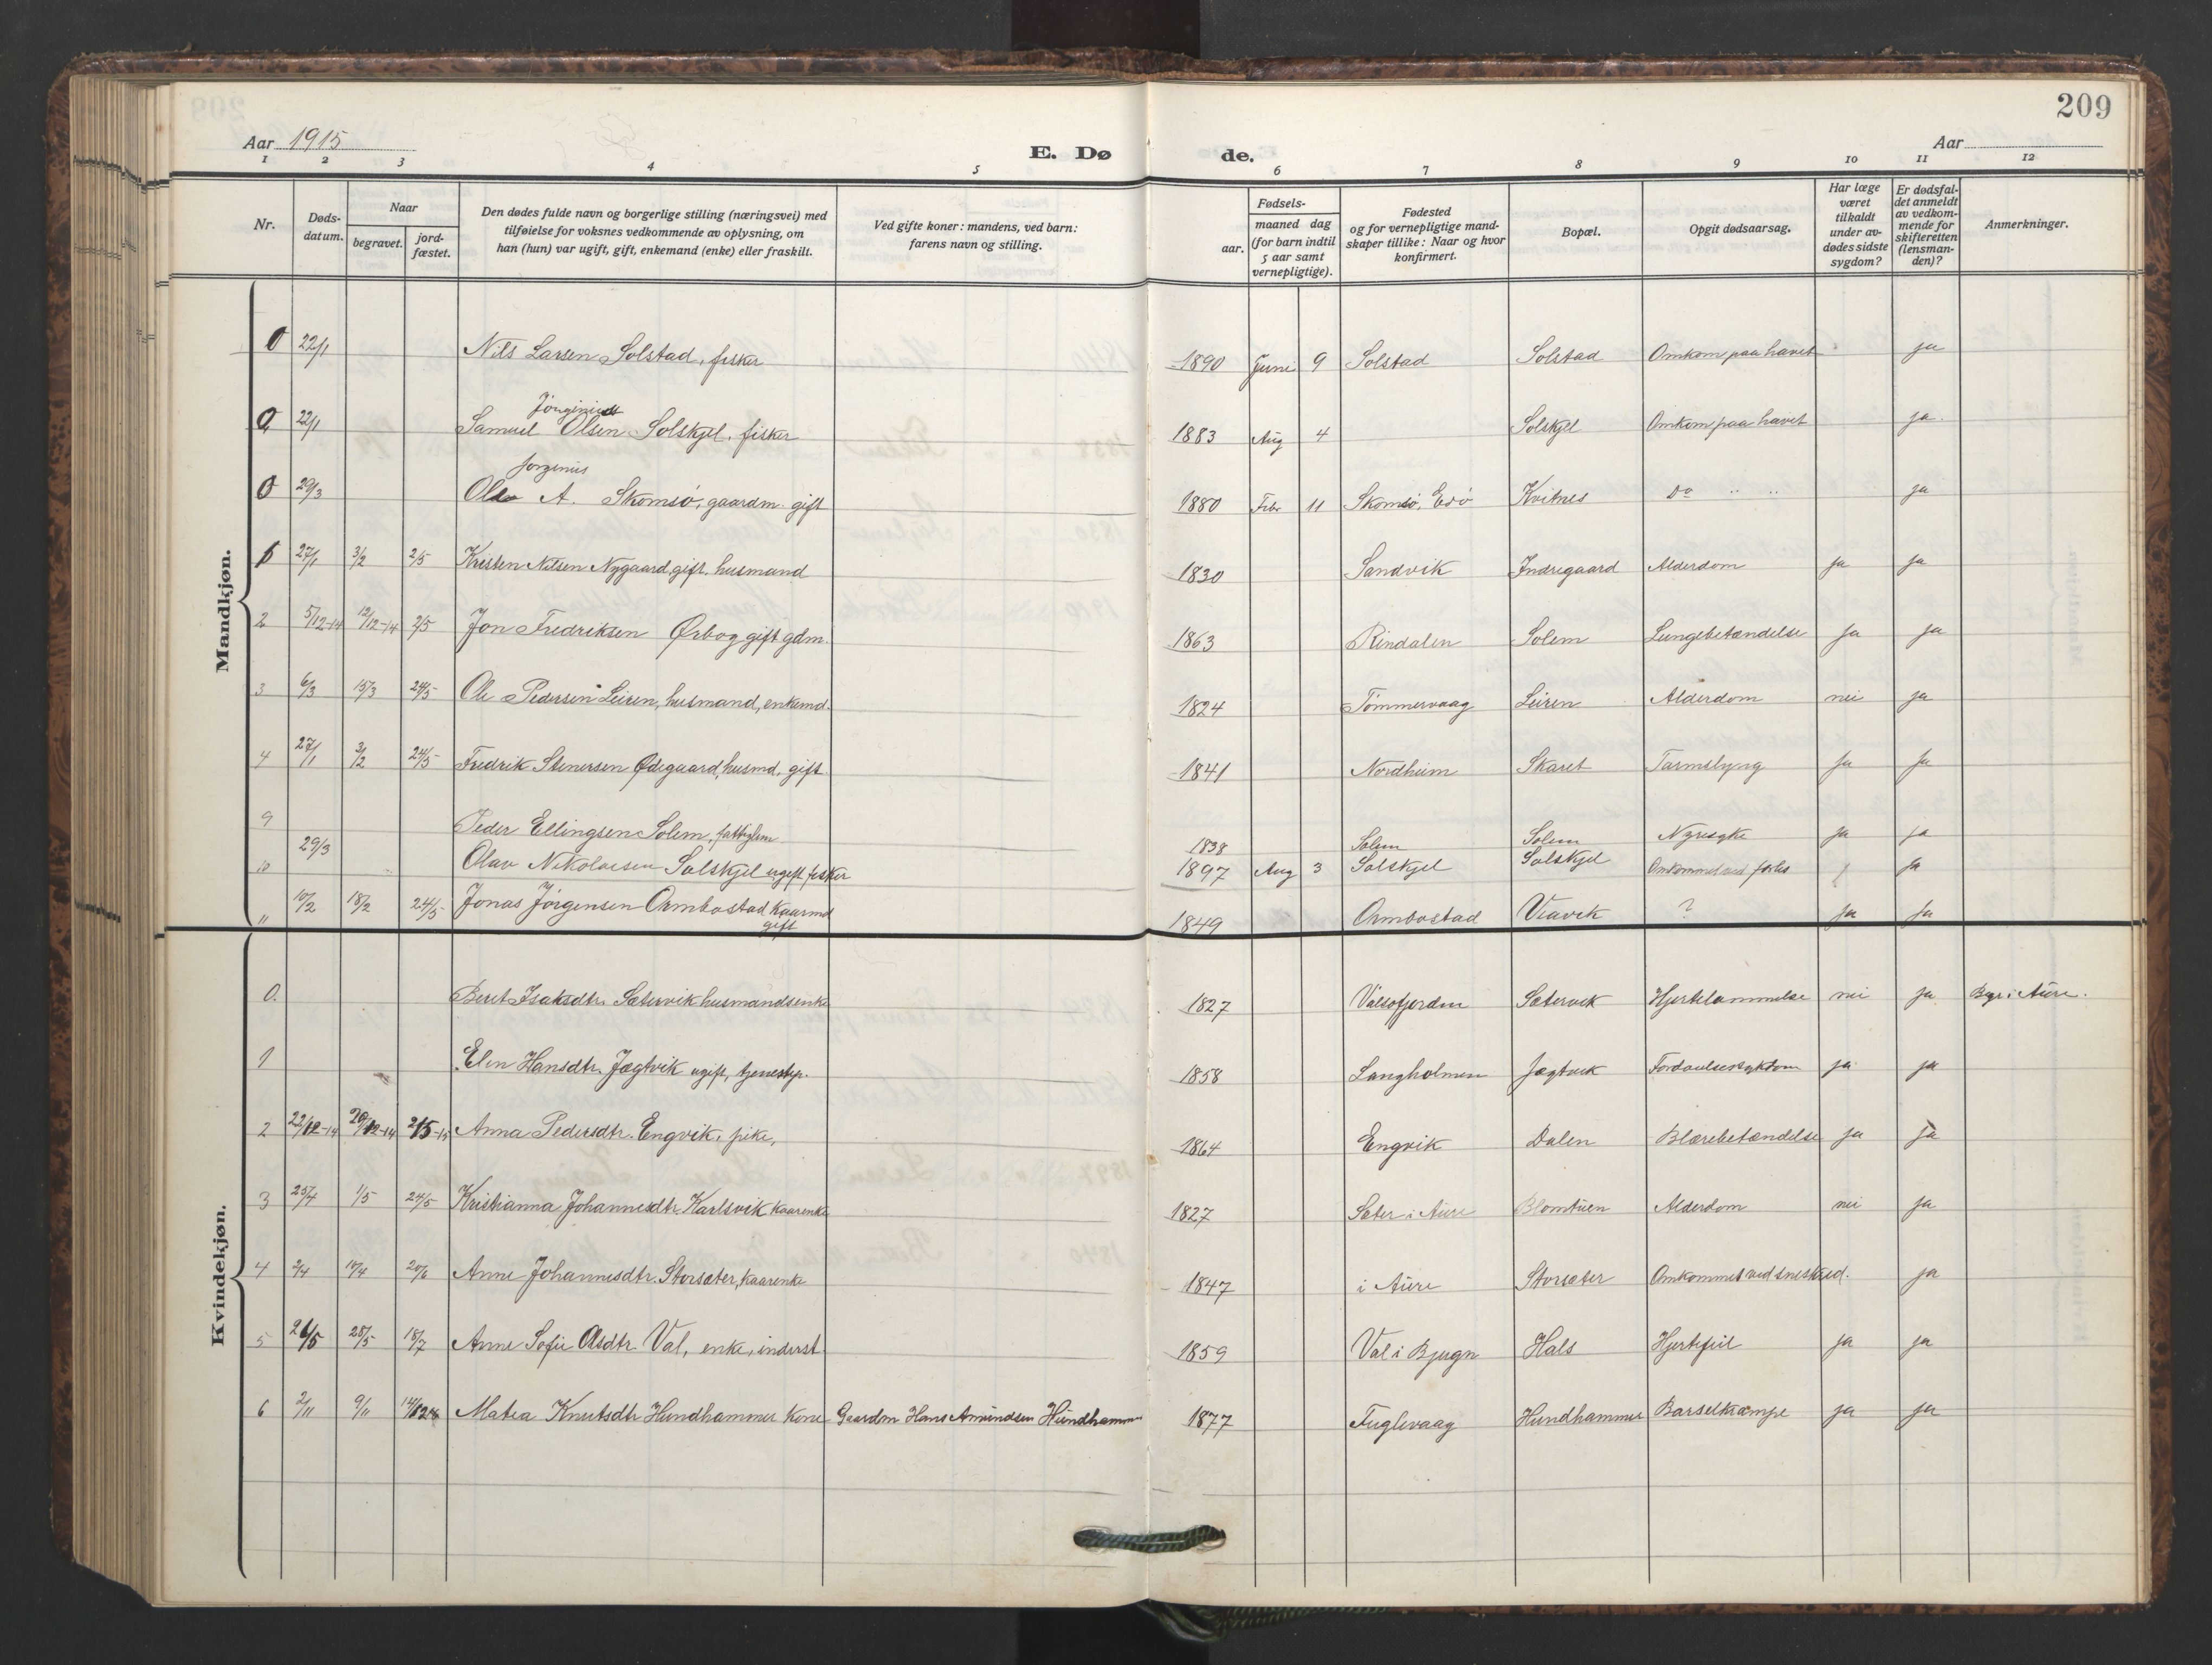 209
Aar 1915
E. Dø
de.
Aar
1 2 3 4 5 6 7 8 9 10 11 12
Nr.
Døds-
datum.
Naar
begravet.
jord-
fæstet.
Den dødes fulde navn og borgerlige stilling (næringsvei) med
tilføielse for voksnes vedkommende av oplysning, om
han (hun) var ugift, gift, enkemand (enke) eller fraskilt.
Ved gifte koner: mandens, ved barn:
farens navn og stilling.
Fødsels-
aar.
maaned dag
(for barn indtil
5 aar samt
vernepligtige).
Fødested
og for vernepligtige mand-
skaper tillike: Naar og hvor
konfirmert.
Bopæl.
Opgit dødsaarsag.
Har læge
været
tilkaldt
under av-
dødes sidste
sygdom?
Er dødsfal-
det anmeldt
av vedkom-
mende for
skifteretten
(lensman-
den)?
Anmerkninger.
Mandkjøn.
0 22/1 Nils Larsen Solstad, fisker 1890 Juni 9 Solstad Solstad Omkom paa havet ja
Jörginius
0 22/1 Samuel Olsen Solskjel, fisker 1883 Aug 4 Solskjel Omkom paa havet ja.
Jorginus
0 29/3 Ole A. Skomsö, gaardm. gift 1880 Febr 11 Skomsö, Edö Kvitnes Do " " ja
1 27/1 3/2 2/5 Kristen Nilsen Nygaard, gift, husmand 1830 Sandvik Indregaard Alderdom ja ja
2 5/12-14 12/12-14 2/5 Jon Fredriksen Ørbog gift gdm. 1863 Rindalen Solem Lungebetændelse ja ja
3 6/3 15/3 24/5 Ole Pedersen Leiren, husmand, enkemd. 1824 Tömmervaag Leiren Alderdom nei ja
4 27/1 3/2 24/5 Fredrik Stenersen Ødegaard, husmd. gift 1841 Nordheim Skaret Tarmslyng ja ja
9 Peder Ellingsen Solem, fattiglem 1838 Solem Solem Nyresyke ja ja
10 29/3 Olav Nikolaisen Solskjel ugift fisker 1897 Aug 3 Solskjel Solskjel Omkommet ved forlis ja
11 10/2 18/2 24/5 Jonas Jörgensen Ormbostad kaarmd 1849 Ormbostad Veavik ? ja ja
gift
Kvindekjøn.
0. Beret Isaksdtr. Sætervik husmandsenke 1827 Valsøfjorden Sætervik Hjertelammelse nei ja Begr. i Aure.
1 Elen Hansdtr. Jægtvik ugift, tjenestep. 1858 Langholmen Jægtvik Fordøielsessykdom ja ja
2 22/12-14 29/12-14 2/5-15 Anna Pedersdtr. Engvik, pike, 1864 Engvik Dalen Blærebetændelse ja ja
3 25/4 1/5 24/5 Kristianna Johannesdtr. Karlsvik kaarenke 1827 Sæter i Aure Blomtuen Alderdom nei ja
4 2/4 10/4 20/6 Anne Johannesdtr. Storsæter, kaarenke 1847 i Aure Storsæter Omkommet ved sneskred. ja
5 21/5 28/5 18/7 Anne Sofie Olsdtr. Val, enke, inderst 1859 Val i Bjugn Hals Hjertefeil ja ja
6 2/11 9/11 Matea Knutsdtr Hundhammer kone Gaardm Hans Amundsen Hundhammer 1877 Fuglevaag Hundhammer Barselkrampe ja ja